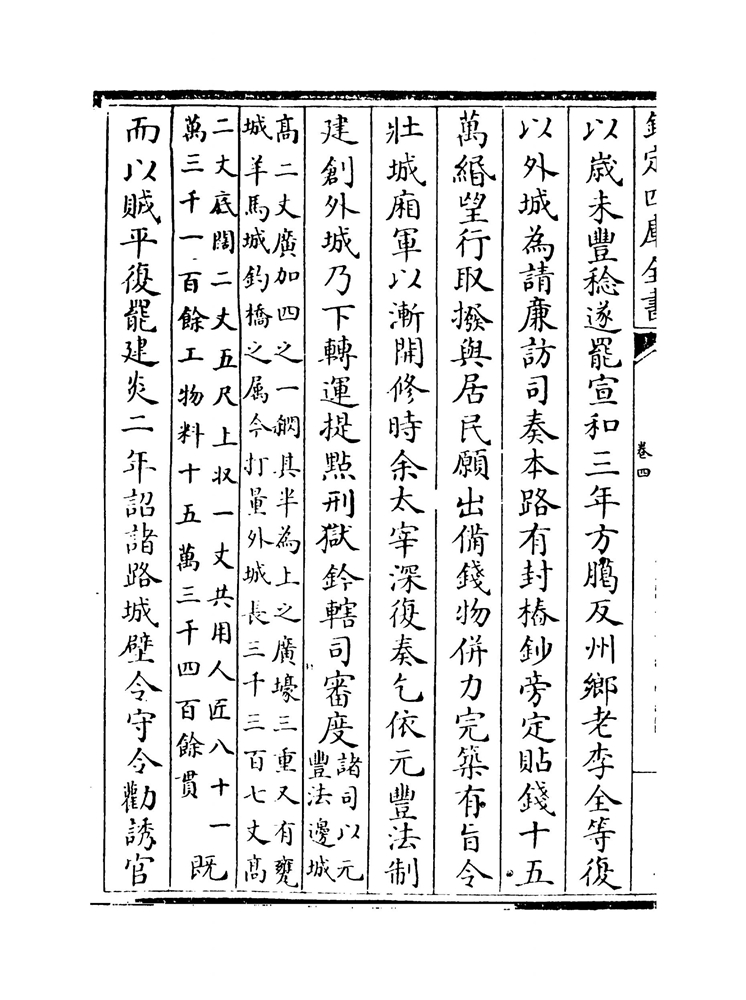 欽定四庫全書
卷四
以歲未豐稔遂罷宣和三年方臘反州鄉老李全等復
以外城為請廉訪司奏本路有封樁鈔旁定貼錢十五
萬緡望行取撥與居民願出備錢物併力完築有旨令
壯城廂軍以漸開修時余太宰深復奏乞依元豐法制
建創外城乃下轉運提點刑獄鈐轄司審度諸司以元
豐法邊城
高二丈廣加四之一網具半為上之廣壕三重又有甕
城羊馬城釣橋之属今打量外城長三千三百七丈高
二丈底闊二丈五尺上収一丈共用人匠八十一
萬三千一百餘工物料十五萬三千四百餘貫
既
而以賊平復罷建炎二年詔諸路城壁令守令勸誘官